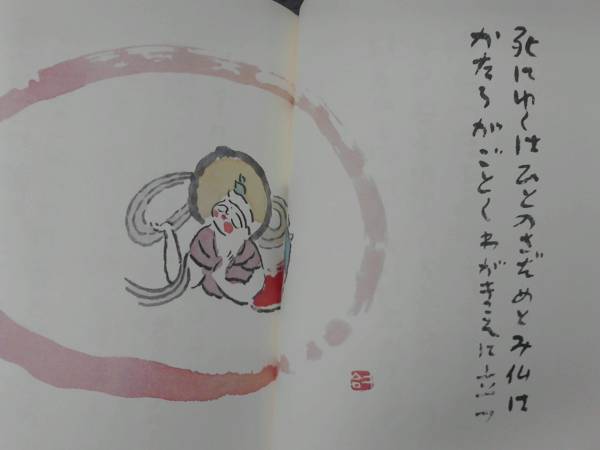 死にゆくはひとのさだめとみ仏は
かたるがごとくわがまえに立つ